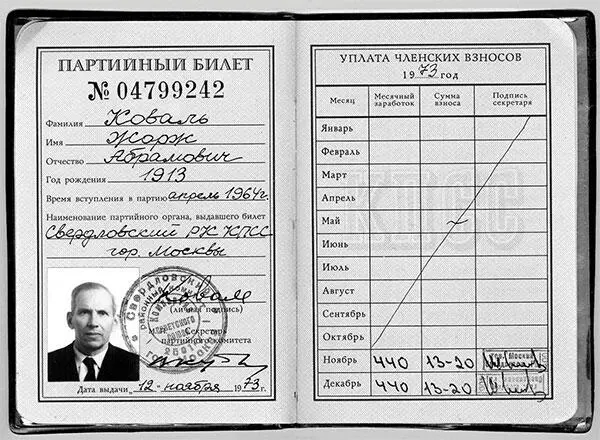 ПАРТИЙНЫЙ БИЛЕТ
№ 04799242
Фамилия Коваль
Имя Жорж
Отчество Абрамович
Год рождения 1913
Время вступления в партию апрель 1964г.
Наименование партийного органа, выдавшего билет
Свердловский РК КПСС
гор. Москвы
Коваль
(личная подпись)
Секретарь
партийного комитета
Дата выдачи 12 ноября 1973г.
УПЛАТА ЧЛЕНСКИХ ВЗНОСОВ
1973 год
Месяц Месячный заработок Сумма взноса Подпись секретаря
КПСС
Январь
Февраль
Март
Апрель
Май
Июнь
Июль
Август
Сентябрь
Октябрь
Ноябрь 440 13-20
Декабрь 440 13-20